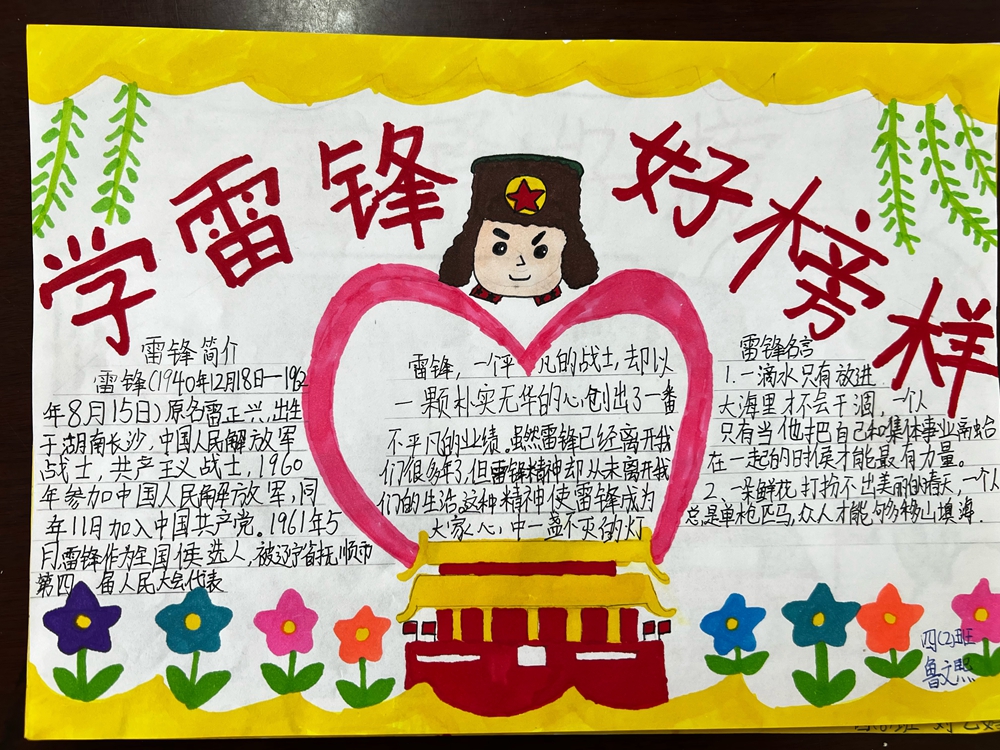 学雷锋好榜样
雷锋简介
雷锋(1940年12月18日—1962
年8月15日)原名雷正兴,出生
于湖南长沙,中国人民解放军
战士,共产主义战士,1960
年参加中国人民解放军,同
年11月加入中国共产党。1961年5
月,雷锋作为全国候选人,被辽宁省抚顺市
第四届人民大会代表
雷锋,一个平凡的战士,却以
一颗朴实无华的心,创出了一番
不平凡的业绩。虽然雷锋已经离开我
们很多年了,但雷锋精神却从未离开我
们的生活。这种精神使雷锋成为
大家心中一盏不灭的灯
雷锋名言
1.一滴水只有放进
大海里才不会干涸,一个人
只有当他把自己和集体事业融合
在一起的时候才能最有力量。
2.一朵鲜花打扮不出美丽的春天,一个人
总是单枪匹马,众人才能够移山填海.
四(2)班
鲁文熙